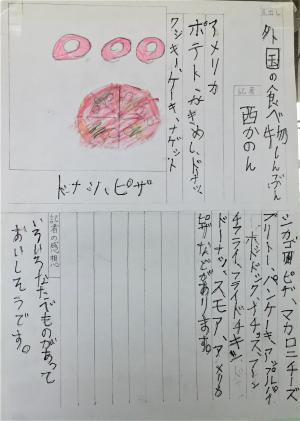 見出し
外国の食べ物しんぶん
記者
西かのん
アメリカ
ポテト、みきめし、ドナッツ
クッキー、ケーキ、ナゲット
ドーナツ、ピザ
シカゴ風ピザ マカロニチーズ
ブリトー、パンケーキ、アップルパイ
ホットドッグ、ナチョス、フレン
チフライ、フライドチキン
ドーナッツ、スモア、アメリカ
ピザなどがあります。
記者の感想
いろいろなたべものがあって
おいしそうです。